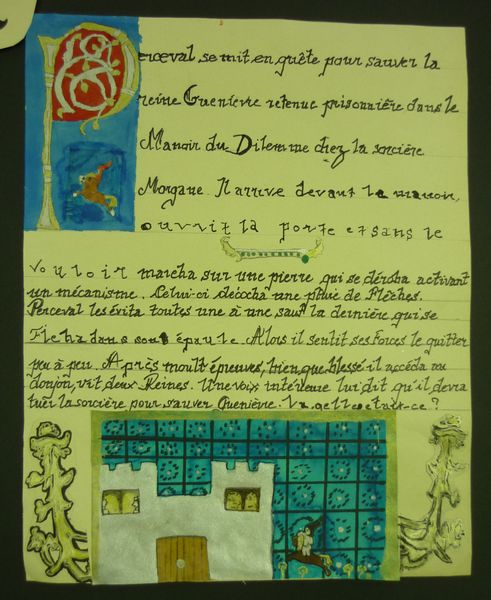 Perceval se mit en quête pour sauver la
reine Guenievre retenue prisonnière dans le
Manoir du Dilemme chez la sorcière
Morgane. Il arrive devant le manoir,
ouvrit la porte et sans le
vouloir marcha sur une pierre qui se déroba activant
un mécanisme. Celui-ci décocha une pluie de Flèches.
Perceval les évita toutes une à une sauf la dernière qui se
Ficha dans son épaule. Alors il sentit ses forces le quitter
peu à peu. Après moult épreuves, bien que blessé il accéda au
donjon, vit deux Reines. Une voix intérieure lui dit qu'il devra
tuer la sorcière pour sauver Guenièvre. Laquelle était-ce ?